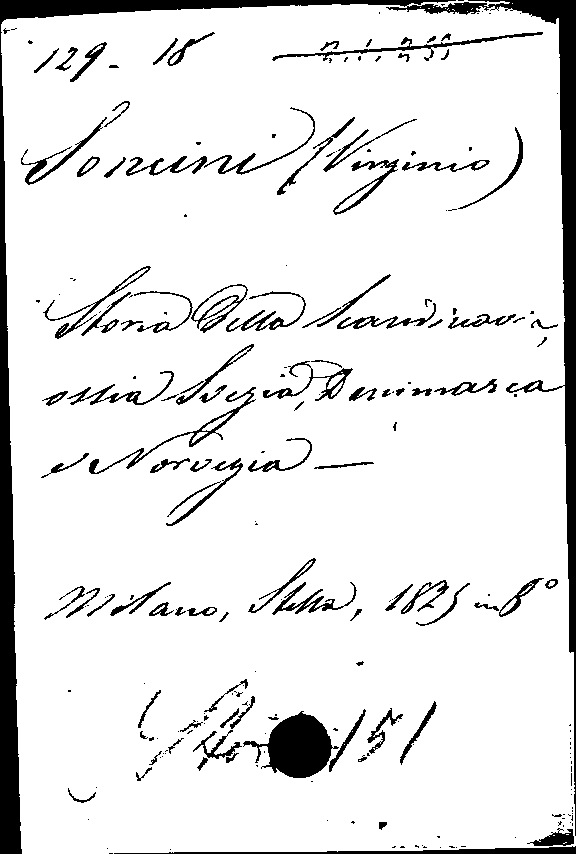 129 - 18
Soncini (Virginio)
Storia della Scandinavia,
ossia Svezia, Danimarca
e Norvegia —
Milano, Stella, 1825 in 8º
151